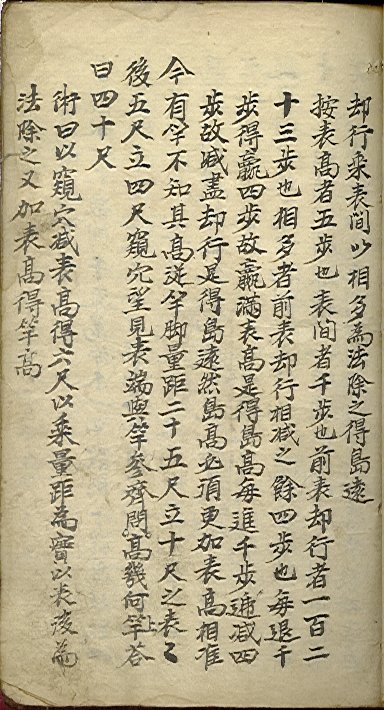 却行乘表間以相多為法除之得島遠
按表高者五步也表間者千步也前表却行者一百二
十三步也相多者前表却行相减之餘四步也每退千
步得贏四步故贏滿表高是得島高每進千步遞减四
步故减盡却行是得島遠然島高必須更加表高相准
今有竿不知其高從竿脚量距二十五尺立十尺之表〻
後五尺立四尺窺穴望見表端與竿參齊問高幾何竿上荅
曰四十尺
術曰以窺穴减表高得六尺以乘量距為實以表後為
法除之又加表高得竿高